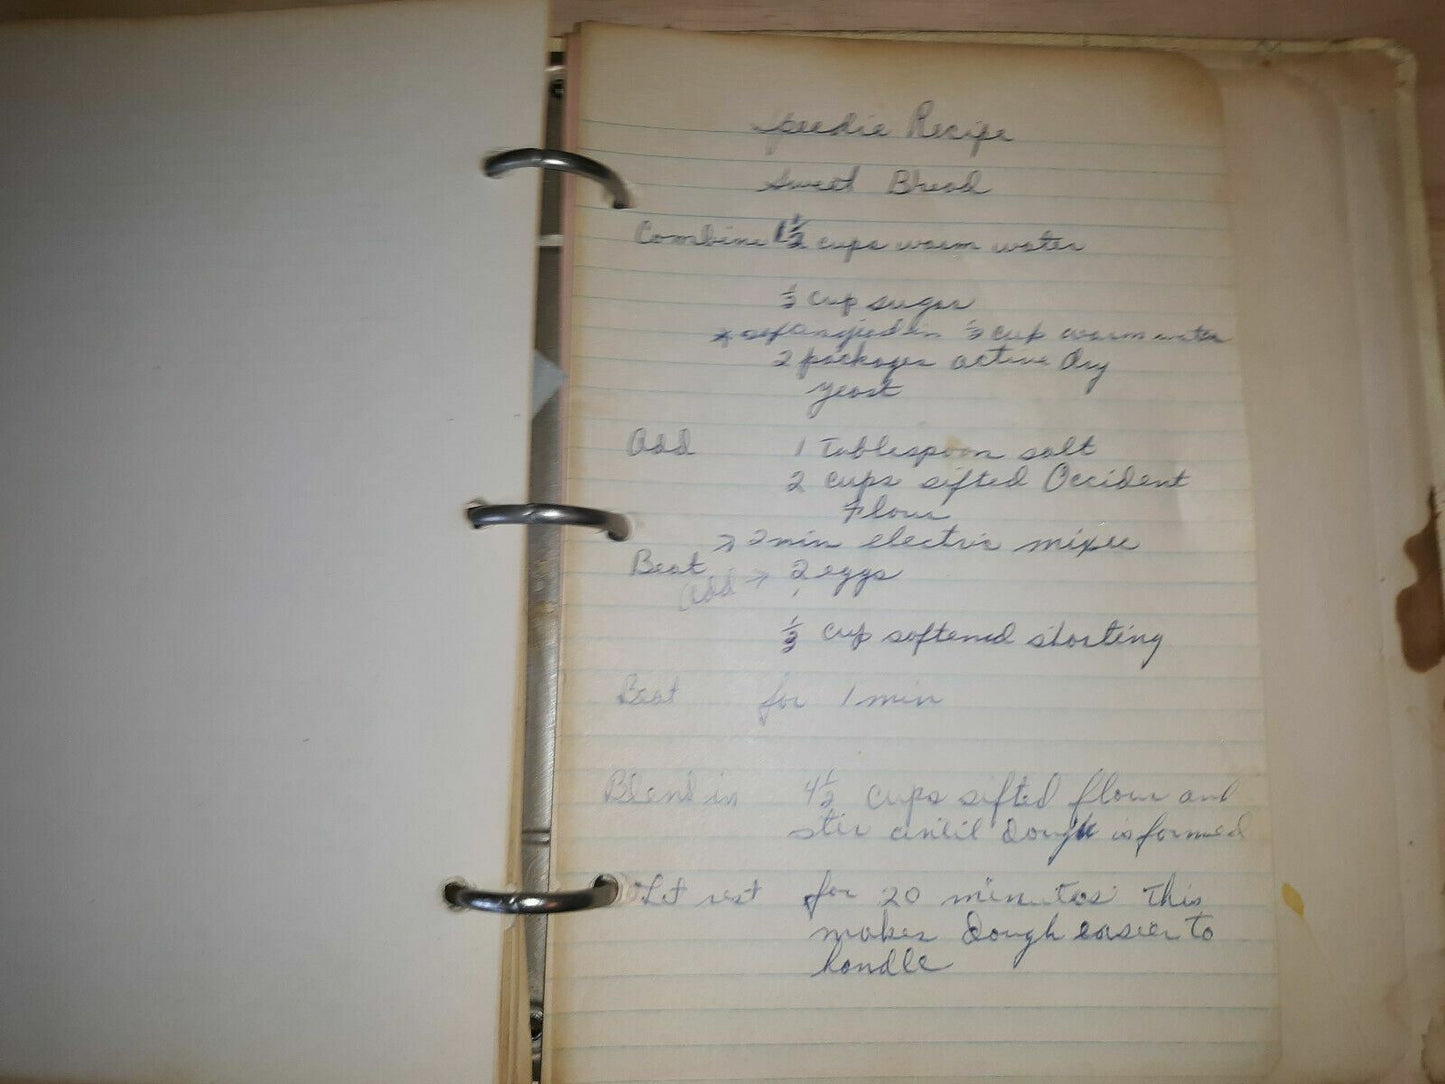 Speedie Recipe
Sweet Bread
Combine 1 1/2 cups warm water
cup sugar
* in cup warm water
2 packages active Dry
yeast
Add 1 Tablespoon salt
2 cups sifted Occident
Flour
→ 2 min electric mixer
Beat
Add → 2 eggs
1/3 cup softened shorting
Beat for 1 min
Blend in 4 1/2 cups sifted flour and
stir until Dough is formed
Let rest for 20 minutes This
makes Dough easier to
handle